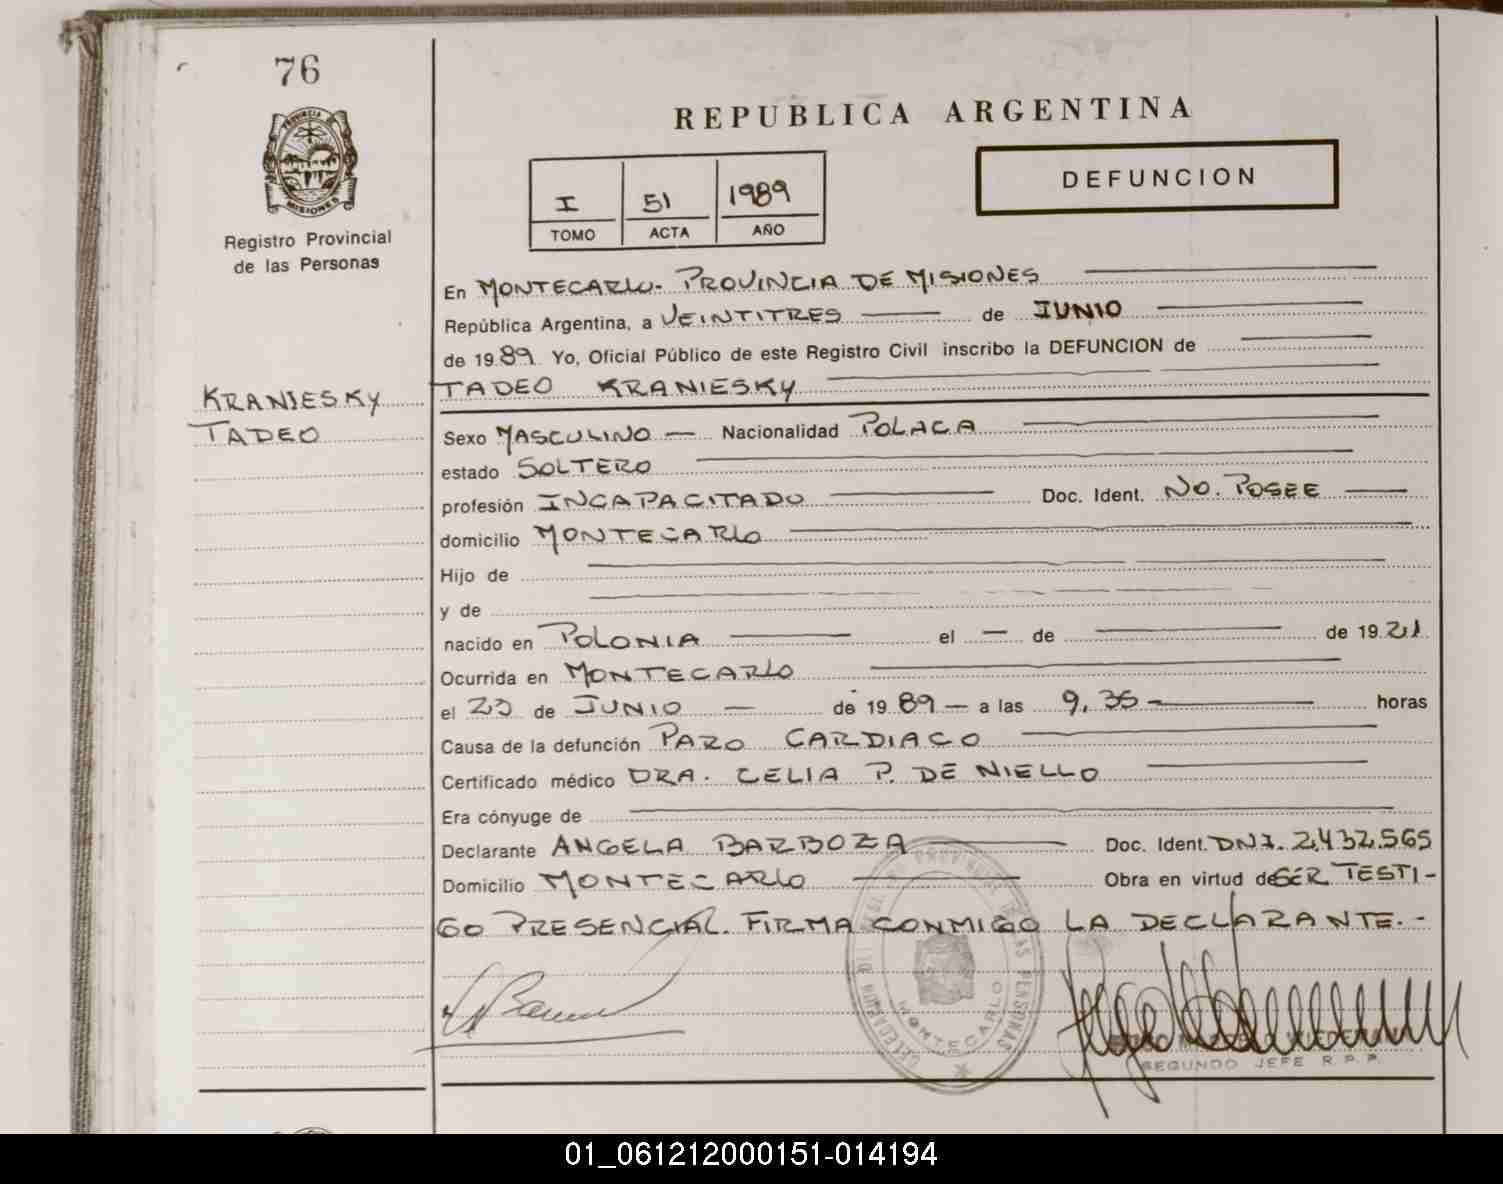 76
PROVINCIA DE
MISIONES
Registro Provincial
de las Personas
KRANIESKY
TADEO
REPUBLICA ARGENTINA
I 51 1989
TOMO ACTA AÑO
DEFUNCION
En MONTECARLO. PROVINCIA DE MISIONES
República Argentina, a VEINTITRES de JUNIO
de 1989 Yo, Oficial Público de este Registro Civil inscribo la DEFUNCION de
TADEO KRANIESKY
Sexo MASCULINO Nacionalidad POLACA
estado SOLTERO
profesión INCAPACITADO Doc. Ident. NO. POSEE
domicilio MONTECARLO
Hijo de
y de
nacido en POLONIA el — de de 1921
Ocurrida en MONTECARLO
el 23 de JUNIO — de 1989 — a las 9,35 horas
Causa de la defunción PARO CARDIACO
Certificado médico DRA. CELIA P. DE NIELLO
Era cónyuge de
Declarante ANGELA BARBOZA Doc. Ident. DNI. 2,432.565
Domicilio MONTECARLO Obra en virtud de SER TESTI-
GO PRESENCIAL. FIRMA CONMIGO LA DECLARANTE.-
MONTECARLO
SEGUNDO JEFE R.P.P.
01_061212000151-014194